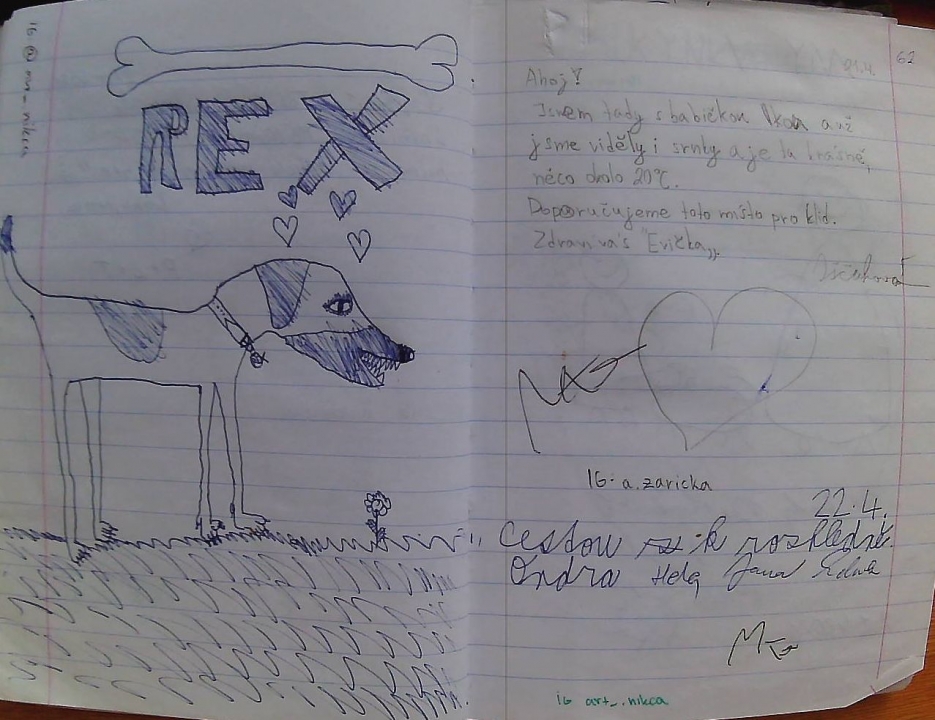 IG @ mn_nikca
REX
62
21.4.
Ahoj!
Jsem tady s babičkou a už
jsme viděly i srnky a je tu krásně,
něco okolo 20°C.
Doporučujeme toto místo pro klid.
Zdraví vás "Evička„
IG: a.zaricka
22.4.
Cestou k rozhledně.
Ondra Hela Jana
IG art_.nikca